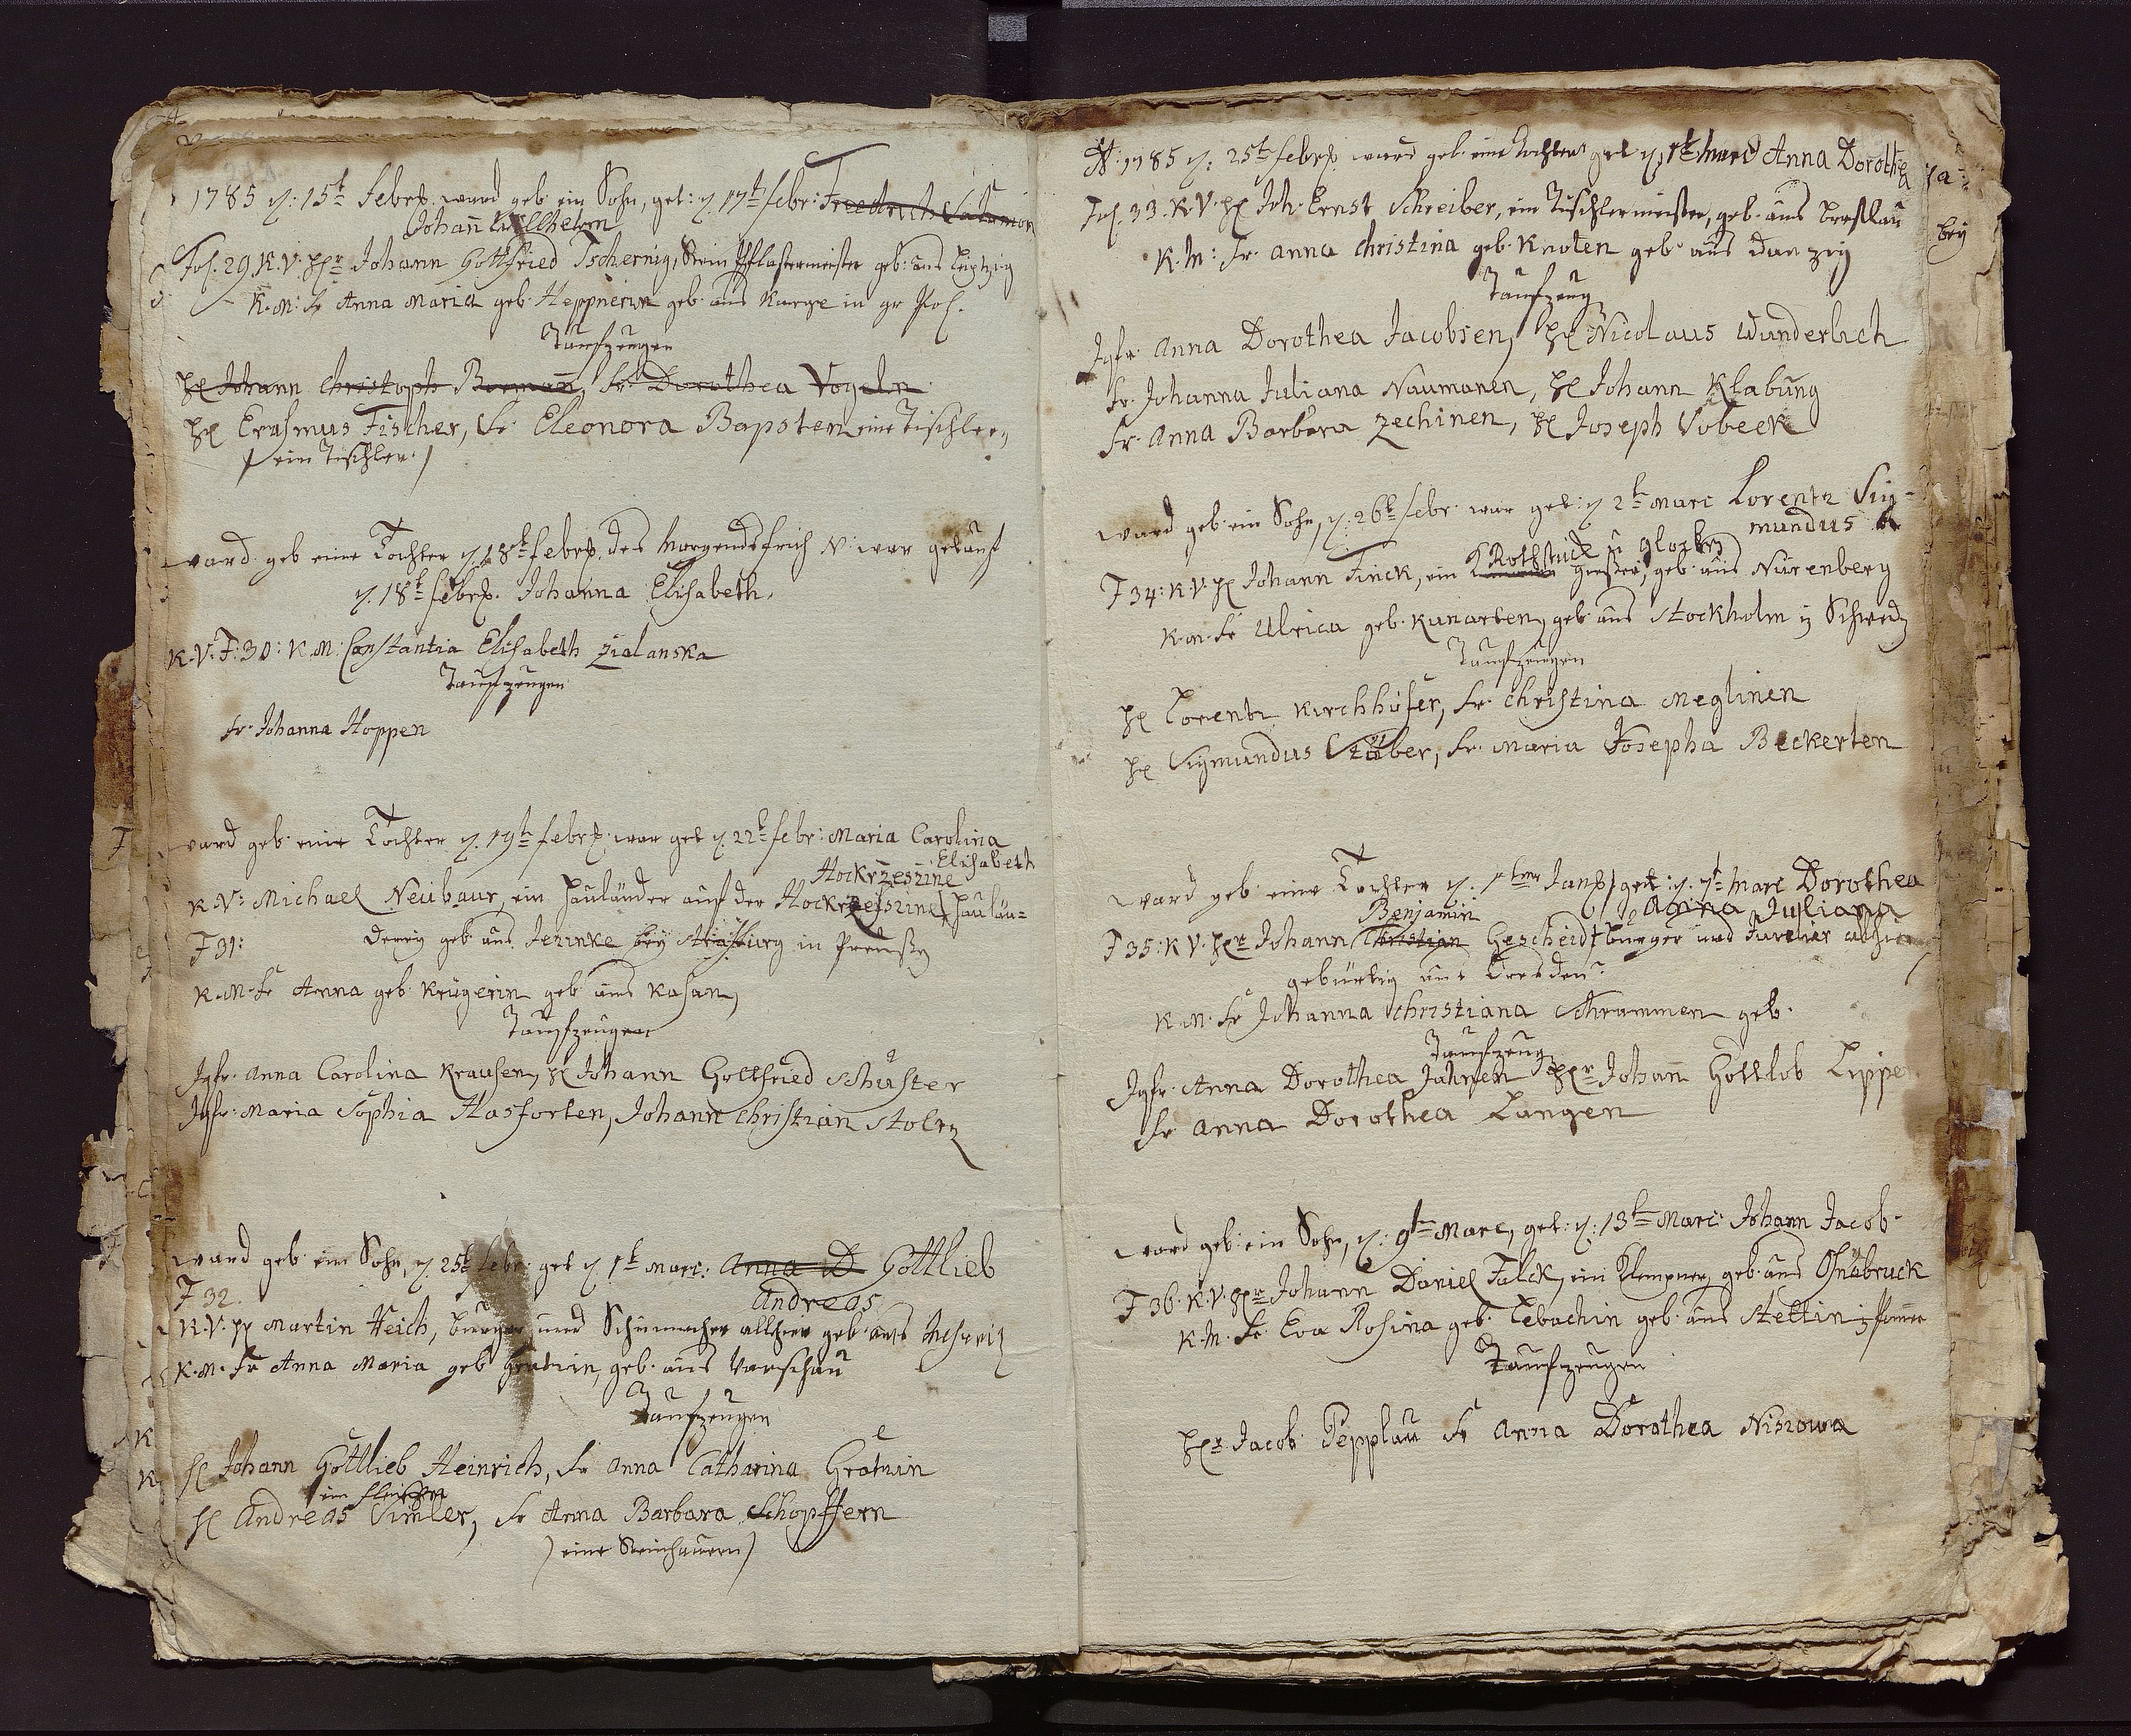 1785 d. 15t Febrz. ward geb. ein Sohn, get: d. 17t Febr: Friedrich Salomon
Johan̄ Willhelm
Fol. 29. K. V. Hr Johann Gottfried Tschernig, Stein Pflastermeister geb: aus Leiptzig
K. M: Fr Anna Maria geb. Heppnerin geb. aus Karge in gr Pol.
Taufzeugen
H Johann Christoph Borman̄, Fr. Dorothea Vogeln
H Erasmus Fischer, Fr. Eleonora Bapsten eine Tischler„
/ ein Tischler /
ward geb eine Tochter d. 18t Febrz. des Morgends früh N. war getauft
d. 18t Febrz. Johanna Elisabeth.
K. V. F: 30: K. M: Constantia Elisabeth Zialanska
Taufzeugen
Fr. Johanna Hoppen
ward geb. eine Tochter d. 19t Febrz. war get d. 22t Febr: Maria Carolina
Elisabeth
Hockrzeszine
K V: Michael Neubaur, ein Hauländer auf der Hockrzeiszine Haulän=
F 31: derey geb aus Jezinke bey Strasburg in Preußen
K. M. Fr Anna geb. Krügerin geb aus Kasan,
Taufzeugen
Jgfr. Anna Carolina Krausen, H Johann Gottfried Schuster
Jgfr: Maria Sophia Hasforten, Johann Christian Stoltz
ward geb ein Sohn, d. 25t Febr. get d 1t Marc: Anna D Gottlieb
F 32. Andreas
K. V. H Martin Heich, Burger und Schumacher allhier geb. aus
K. M. Fr Anna Maria geb Gratzin, geb. aus Warschau
Taufzeugen
H Johann Gottlieb Heinrich, Fr Anna Catharina Gratzin
ein Fleischer
H Andreas Simler, Fr Anna Barbara Schöpffern
) eine Steinhauern)
A: 1785 d: 25t Febrz. ward geb. eine Tochter get d, 1t Marc Anna Dorothea
Fol. 33. K. V. H Joh. Ernst Schreiber, ein Tischlermeister, geb. aus Breslau
K. M: Fr. Anna Christina geb. Knoten geb aus Danzig
Taufzeug
Jgfr. Anna Dorothea Jacobsen, H Nicolaus Wunderlich
Fr. Johanna Juliana Naumanen, H Johann Klabung
Fr. Anna Barbara Zechinen, H Joseph Vobeck
ward geb. ein Sohn, d: 26t Febr. war get: d 2t Marc Lorentz Sig-
mundus
Rothstück u Glocken
F 34: K. V. H Johann Finck, ein gießer, geb. aus Nürenberg
K. M. Fr Ulrica geb. Kunarten, geb aus Stockholm in Schweden
Taufzeugen
H Lorentz Kirchhöfer, Fr. Christina Meglinen
H Sigmundus Stüber, Fr. Maria Josepha Beckerten
ward geb. eine Tochter d. 1ten Janz, get: d. 7t Marc Dorothea
Benjamin Anna Juliana
F 35: K V. Hr Johann Christian Gescheidt Bürger und Juvelier
gebürtig aus Dresden
K. M. Fr Johanna Christiana Schrammen geb.
Taufzeug
Jgfr. Anna Dorothea Jahnen Hr Johan̄ Gottlob Lippe
Fr Anna Dorothea Langen
ward geb: ein Sohn, d: 9t Marc, get: d: 13t Marc: Johann Jacob
F 36. K. V. Hr Johann Daniel Falck, ein Klempner, geb. aus Osnabruck
K. M. Fr. Eva Rosina geb. Lebachin geb. aus Stettin in Pomer
Taufzeugen
Hr Jacob Pepplau Fr Anna Dorothea Niszowa